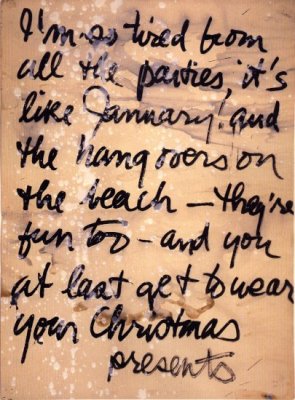 I'm so tired from
all the parties, it's
like January! and
the hangovers on
the beach — they're
fun too — and you
at last get to wear
your Christmas
presents